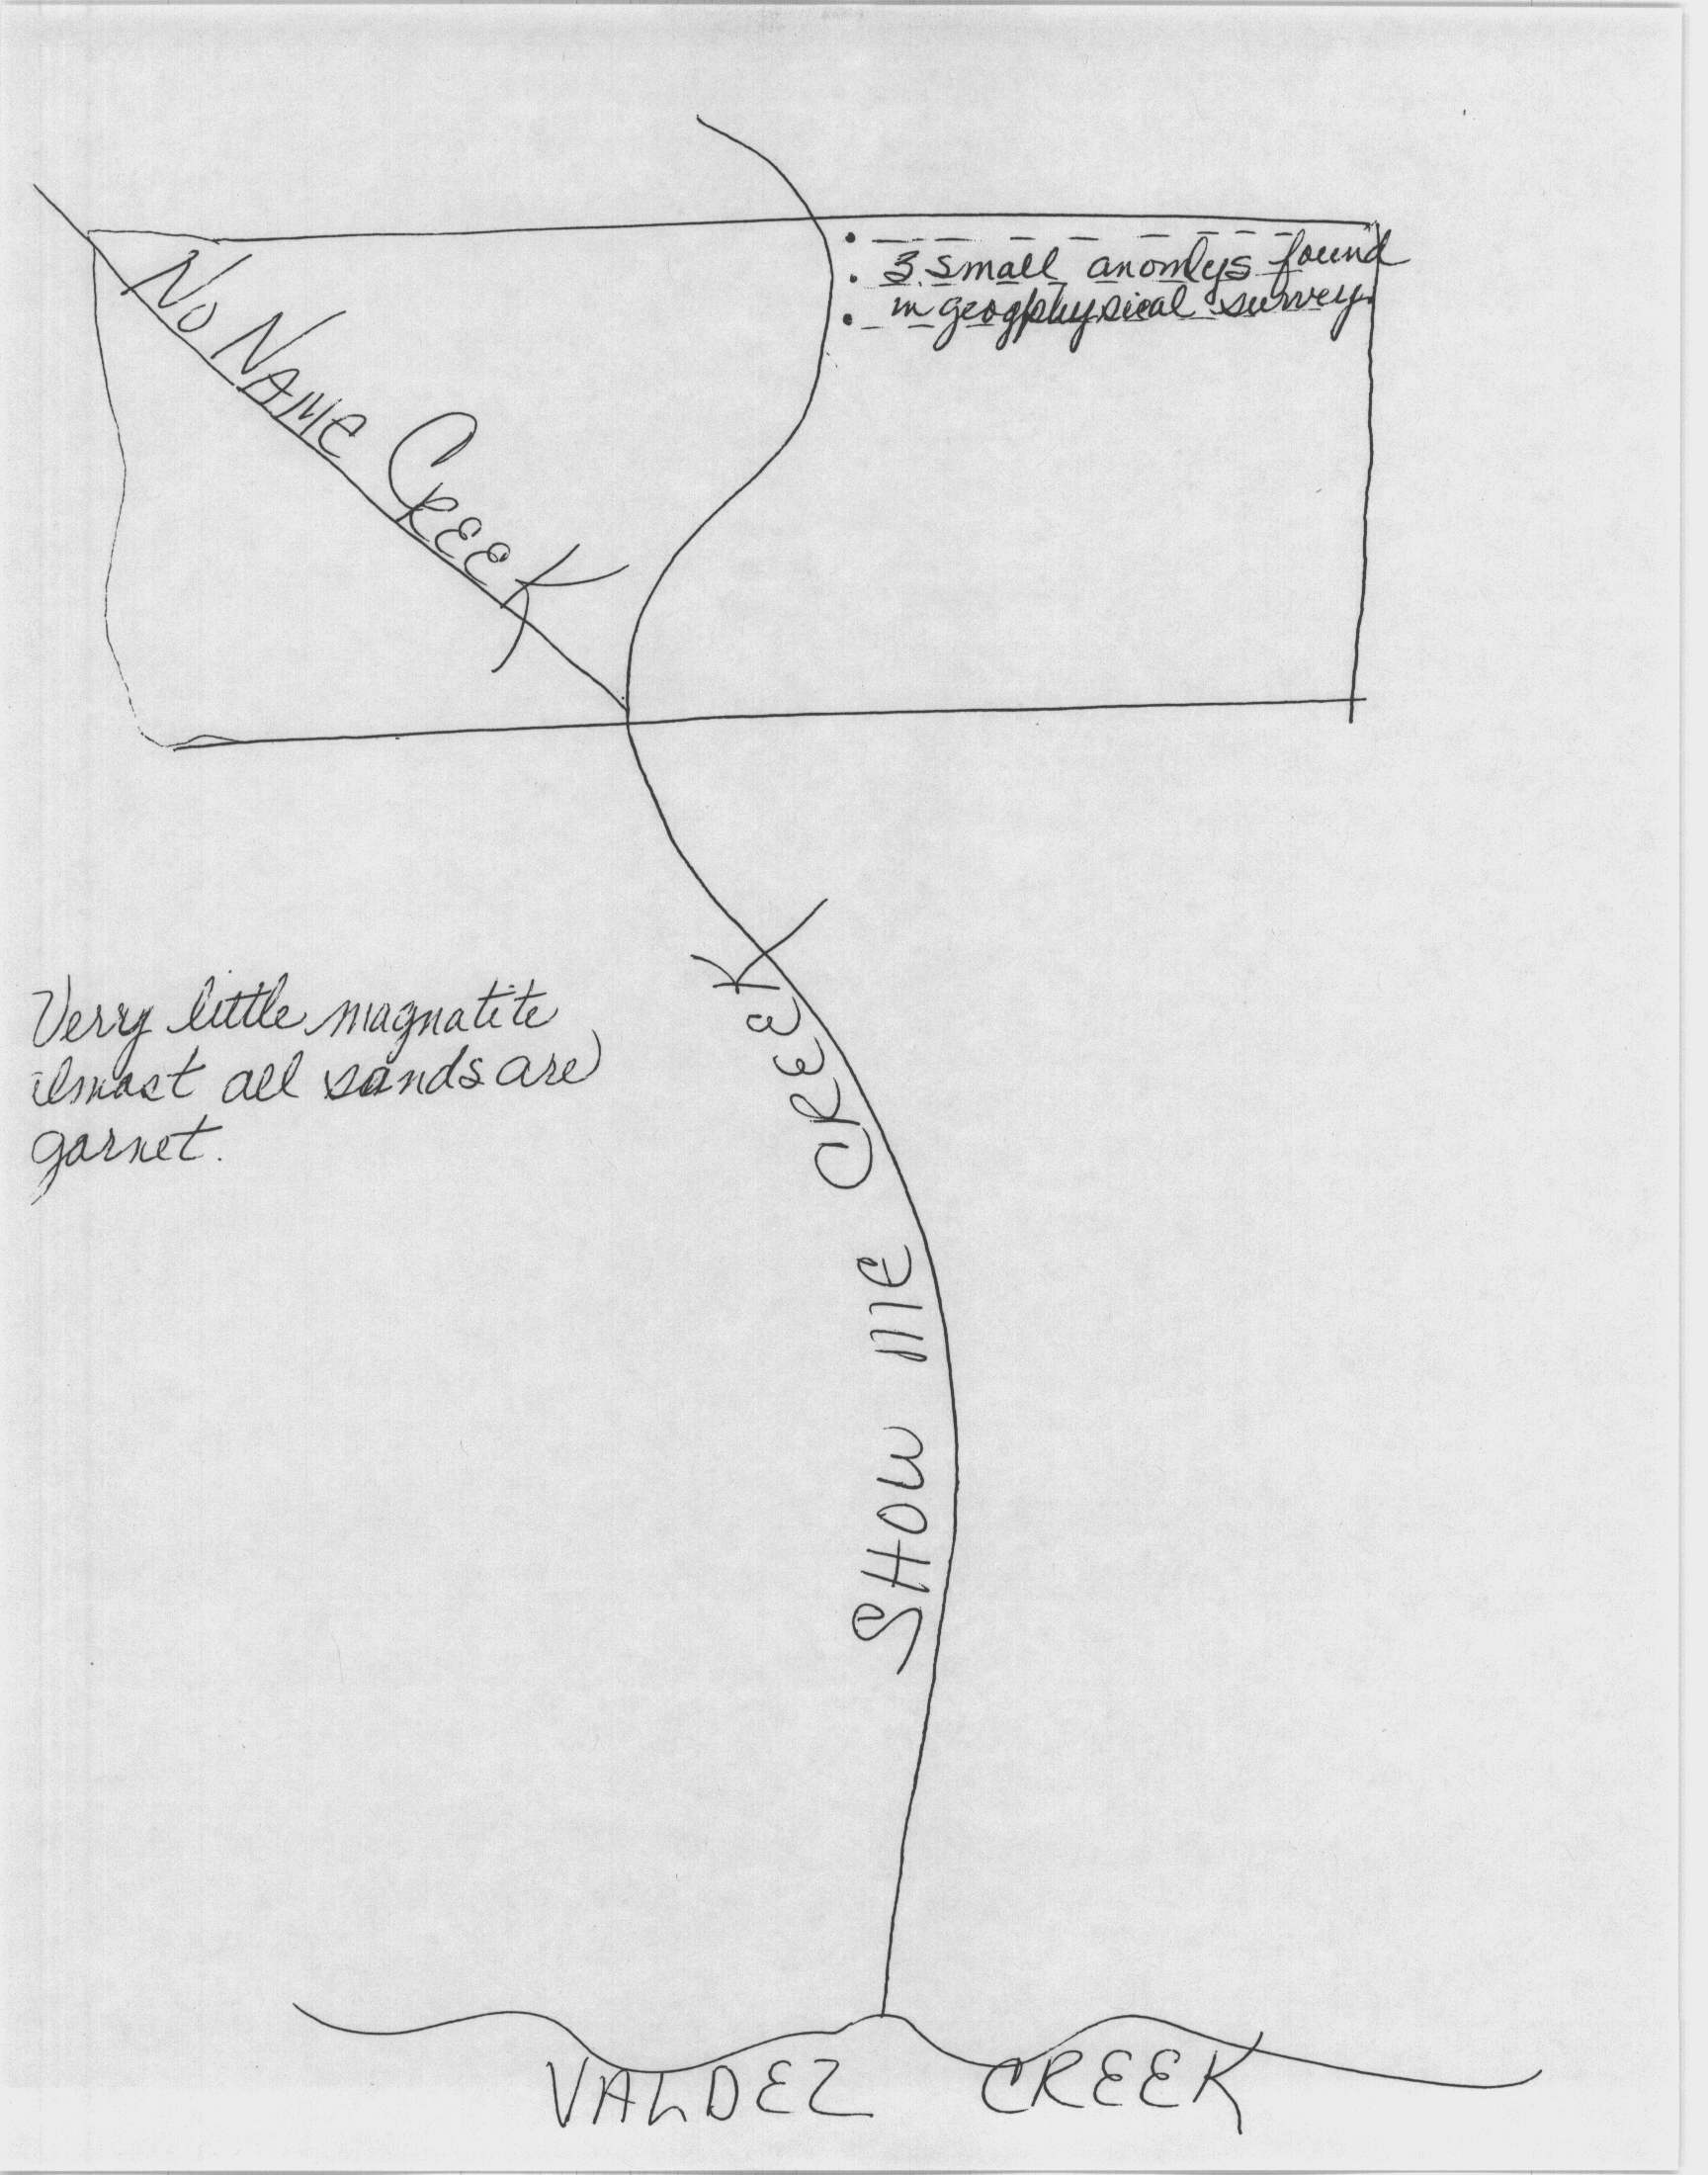 No NAMe CReeK
3 small anomlys found
in geogphysical survey.
Verry little magnatite
almost all sands are
garnet.
SHOW Me CReeK
VALDEZ CREEK